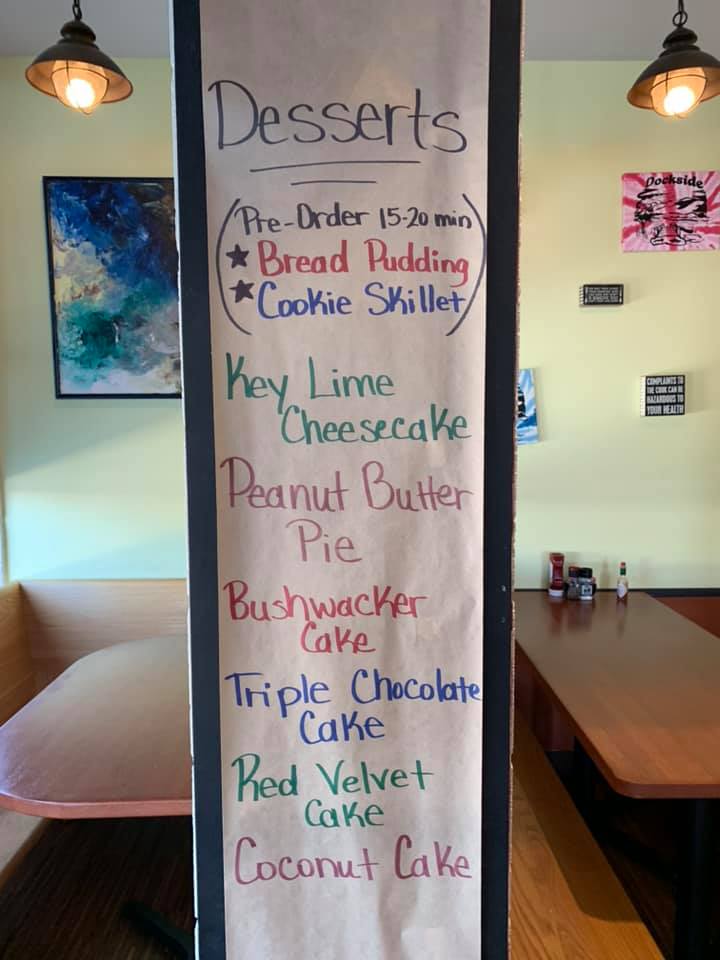 Desserts
(Pre-Order 15-20 min
★ Bread Pudding
★ Cookie Skillet)
Key Lime
Cheesecake
Peanut Butter
Pie
Bushwacker
Cake
Triple Chocolate
Cake
Red Velvet
Cake
Coconut Cake
Dockside
COMPLAINTS TO
THE COOK CAN BE
HAZARDOUS TO
YOUR HEALTH